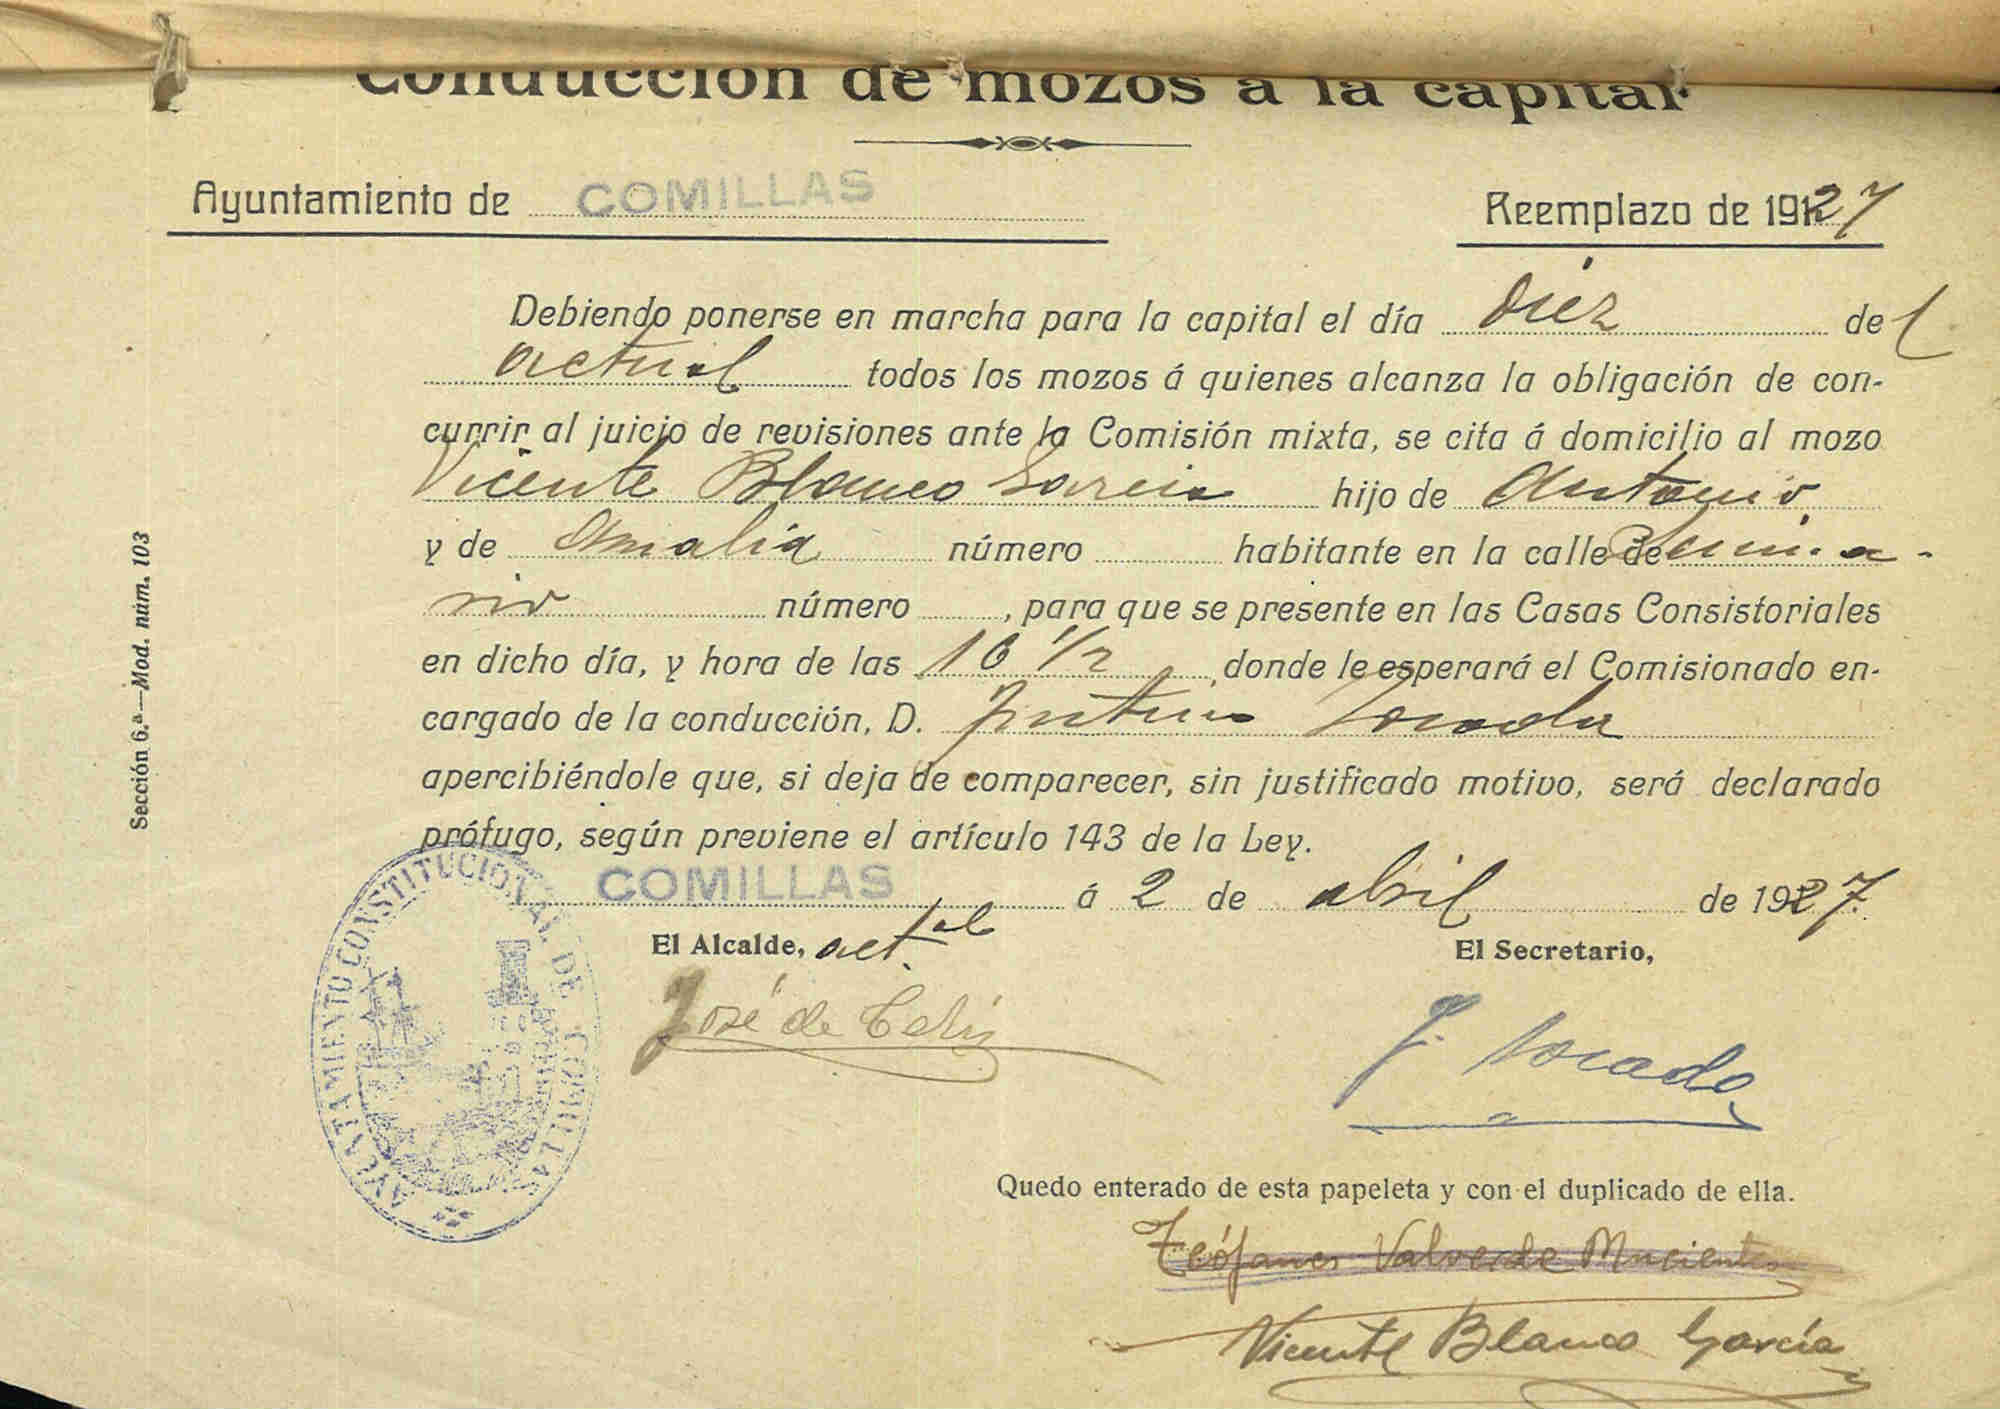 Conducción de mozos a la capital
Ayuntamiento de COMILLAS
Reemplazo de 1927
Debiendo ponerse en marcha para la capital el día diez del
actual todos los mozos á quienes alcanza la obligación de con-
currir al juicio de revisiones ante la Comisión mixta, se cita á domicilio al mozo
Vicente Blanco Garcia hijo de Antonio
y de Amalia número habitante en la calle de Semina-
rio número , para que se presente en las Casas Consistoriales
en dicho día, y hora de las 16 1/2, donde le esperará el Comisionado en-
cargado de la conducción, D.
apercibiéndole que, si deja de comparecer, sin justificado motivo, será declarado
prófugo, según previene el artículo 143 de la Ley.
COMILLAS á 2 de abril de 1927.
El Alcalde, act.al
El Secretario,
José de Celis
AYUNTAMIENTO CONSTITUCIONAL DE COMILLAS
Quedo enterado de esta papeleta y con el duplicado de ella.
Teófanes Valverde Mucientes
Vicente Blanco García
Sección 6.ª—Mod. núm. 103